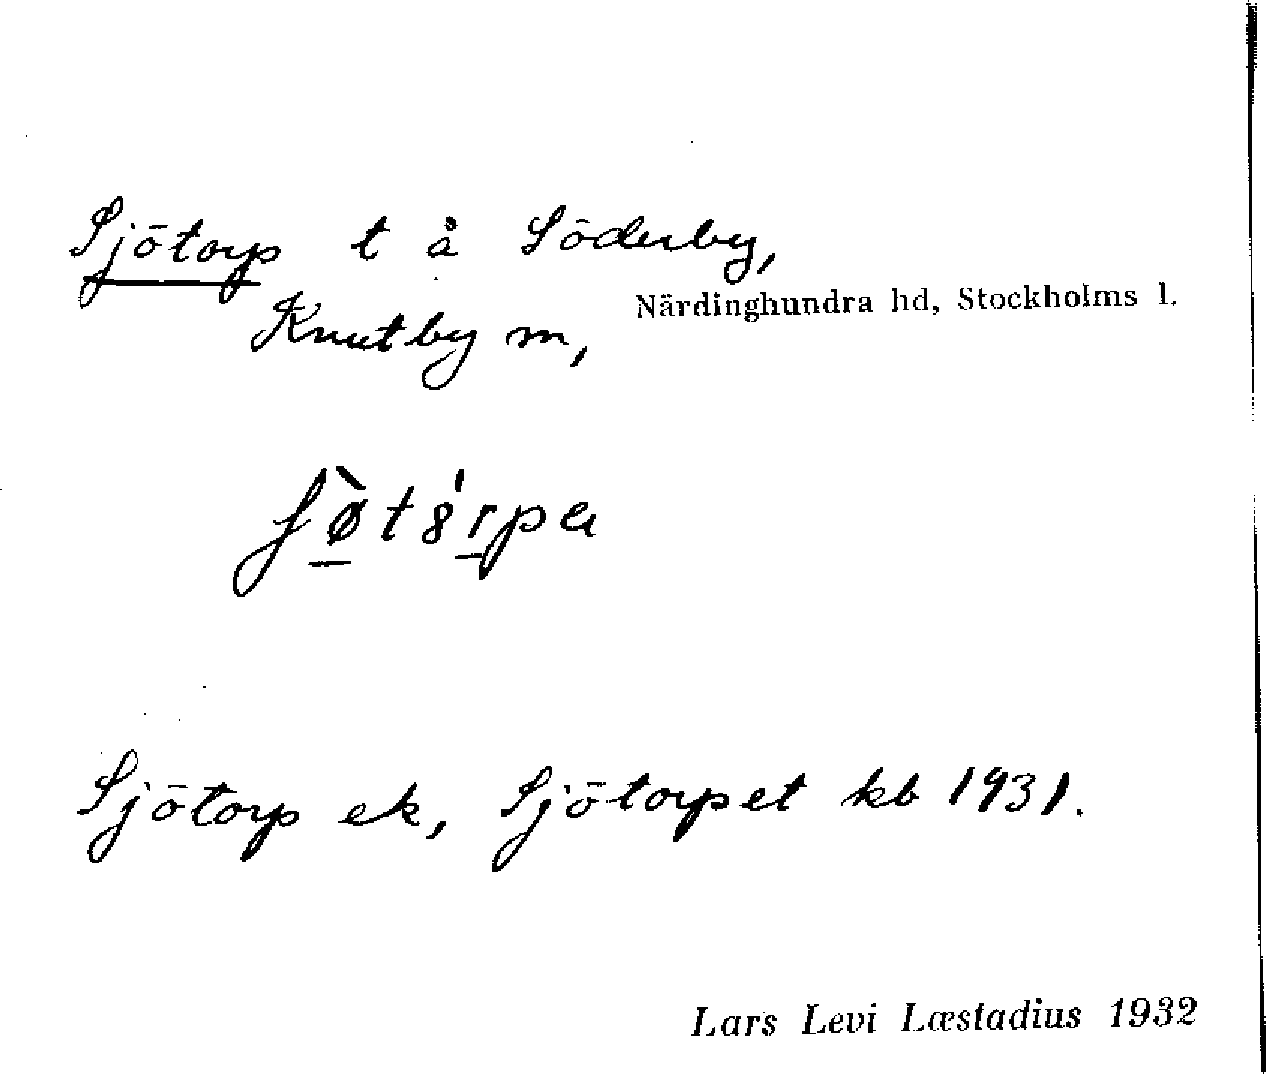 Sjötorp t å Söderby,
Knutby m, Närdinghundra hd, Stockholms l.
Sjötorp ek, Sjötorpet kb 1931.
Lars Levi Læstadius 1932